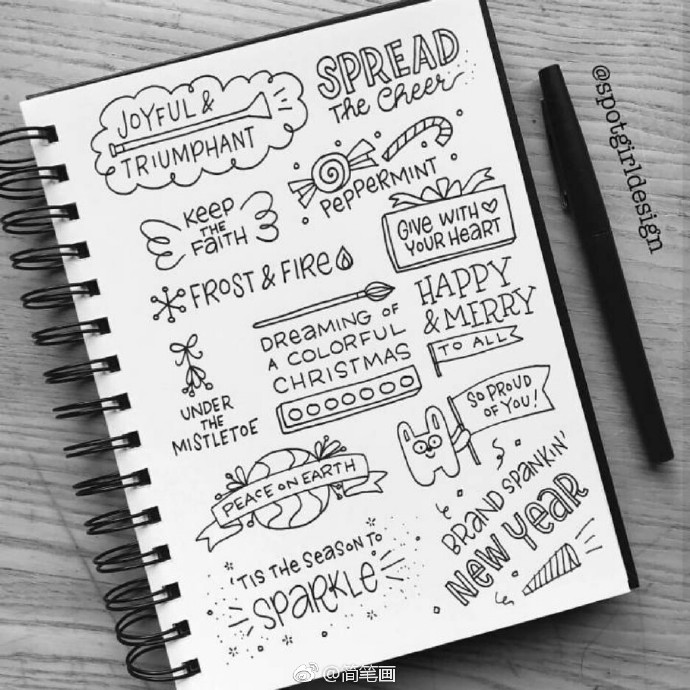 JOYFUL &
TRIUMPHANT
SPREAD
The Cheer
KEEP
THE
FAITH
PEPPERMINT
GIVE WITH
YOUR HEART
FROST & FIRE
HAPPY
& MERRY
TO ALL
DREAMING OF
A COLORFUL
CHRISTMAS
UNDER
THE
MISTLETOE
SO PROUD
OF YOU!
PEACE ON EARTH
BRAND SPANKIN'
NEW YEAR
'TIS THE SEASON TO
SPARKLE
@spotgirldesign
@简笔画